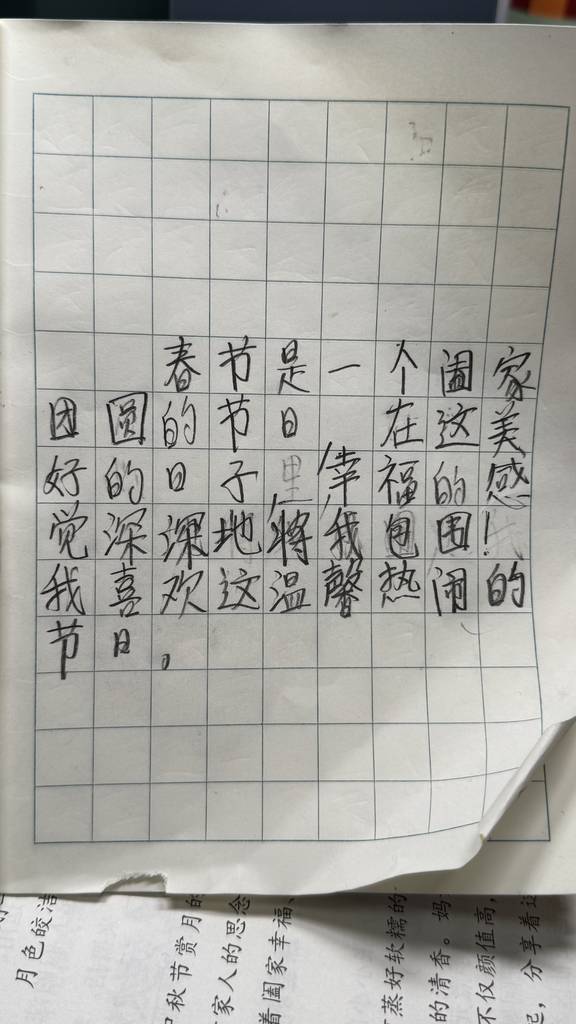 春节是一个阖家
团圆的节日 在这美
好的日子里,幸福的感
觉深深地将我包围!
我喜欢这温馨热闹的
节日。
月色皎洁
秋节赏月的
家人的思念
着阖家幸福、
蒸好软糯的
的清香。妈
不仅颜值高,
起,分享着这